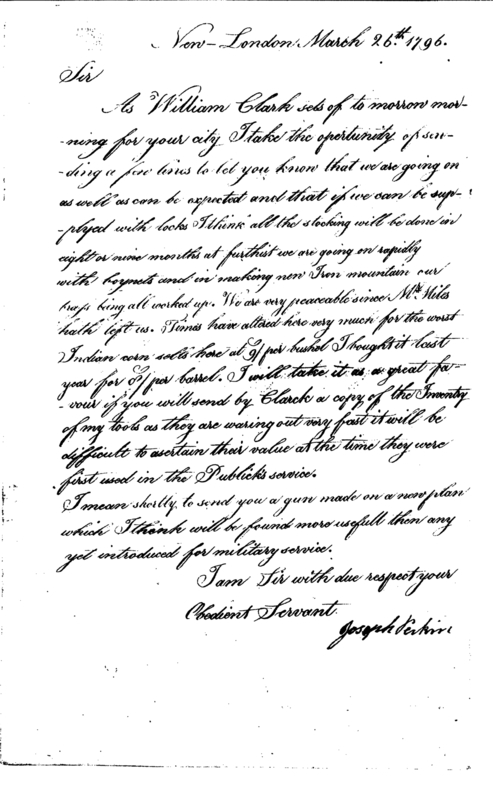 New-London March 26.th 1796.
Sir
As William Clark sets of to morrow mor-
-ning for your city I take the oportunity of sen-
-ding a few lines to let you know that we are going on
as well as can be expected and that if we can be sup-
-plyed with locks I think all the stocking will be done in
eight or nine months at furthist we are going on rapidly
with boynets and in making new Iron mountain our
brass being all worked up. We are very peaceable since Mr. Miles
hath left us. Times have altered here very much for the worst
Indian corn sells here at 9/ per bushel I bought it last
year for per barrel. I will take it as a great fa-
-vour if you will send by Clarck a copy of the Inventry
of my tools as they are waring out very fast it will be
difficult to ascertain their value at the time they were
first used in the Publicks service.
I mean shortly to send you a gun made on a new plan
which I think will be found more usefull then any
yet introduced for military service.
I am Sir with due respect your
Obedient Servant.
Joseph Perkin